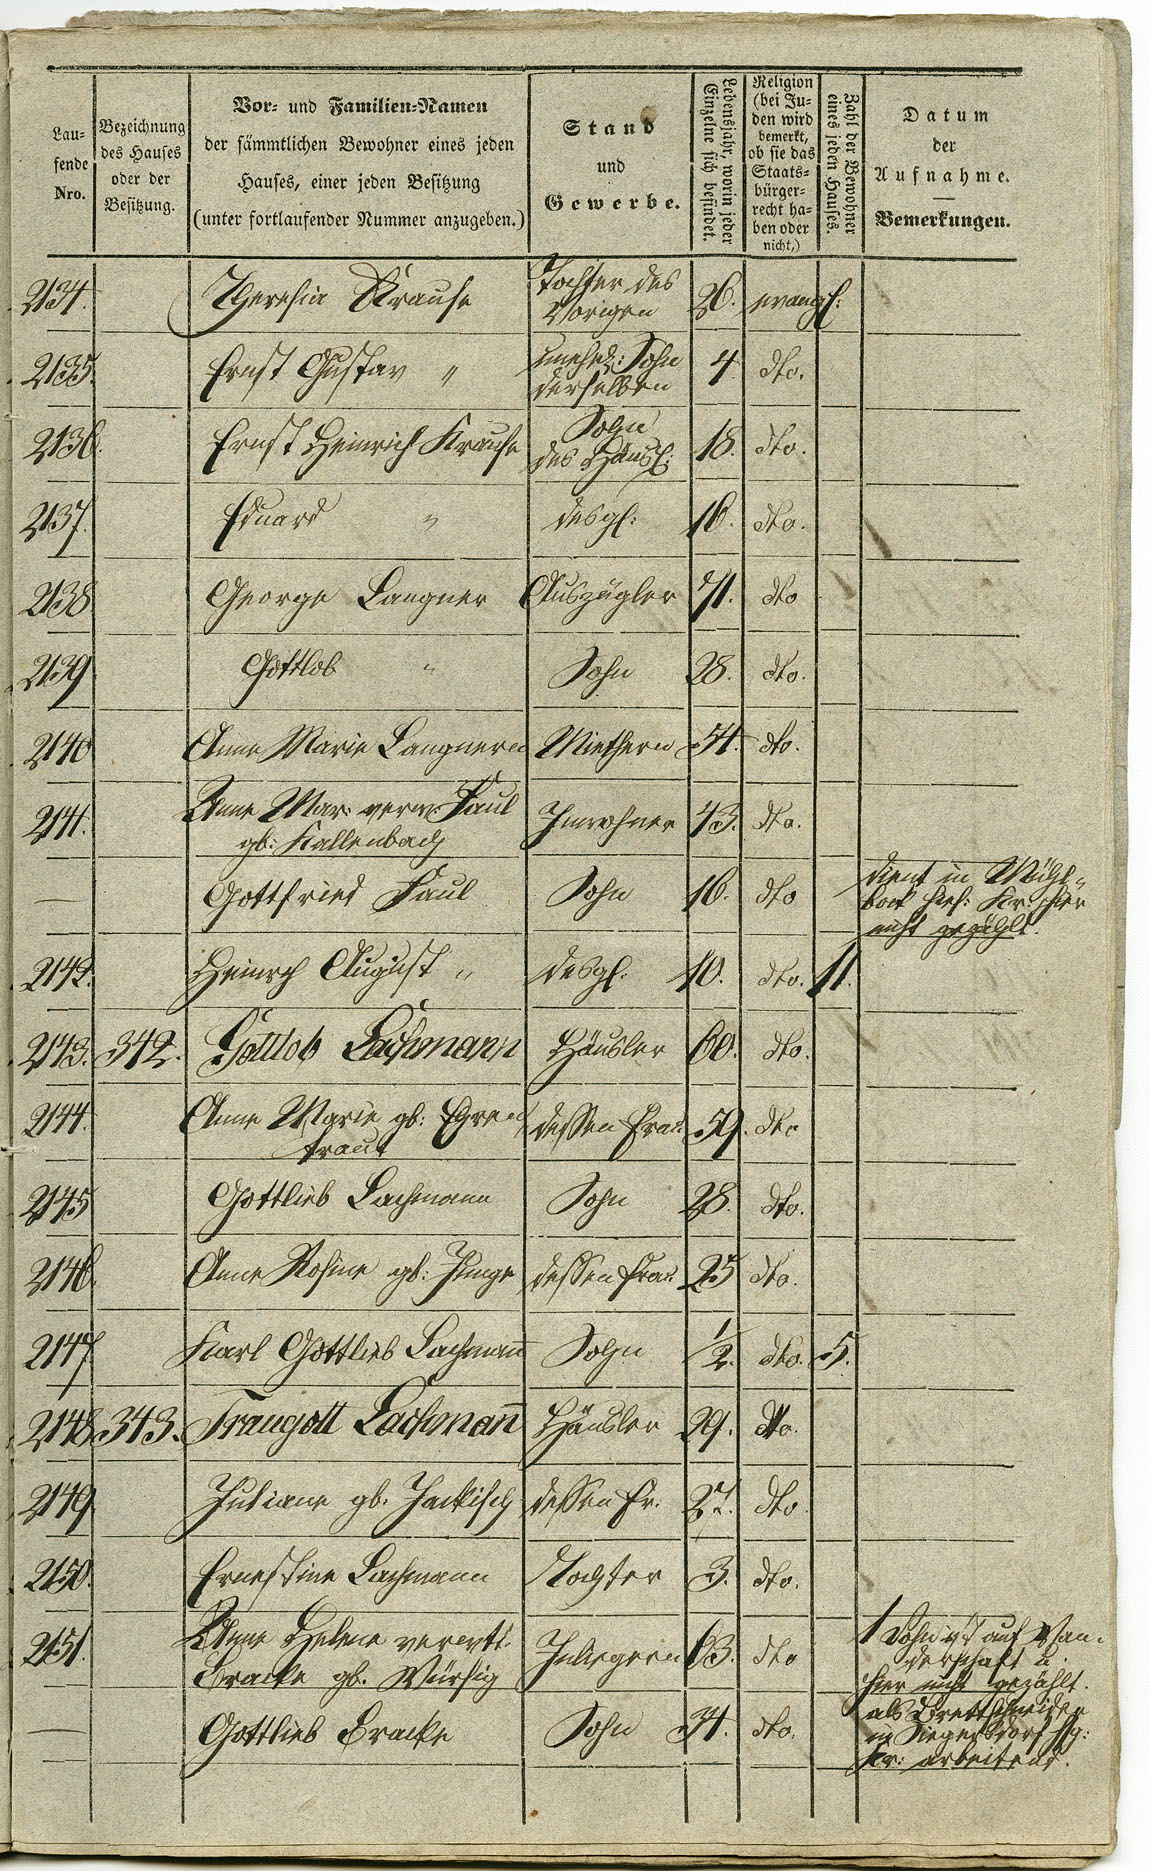 Lau-
fende
Nro.
Bezeichnung
des Hauses
oder der
Besitzung.
Vor- und Familien-Namen
der sämmtlichen Bewohner eines jeden
Hauses, einer jeden Besitzung
(unter fortlaufender Nummer anzugeben.)
Stand
und
Gewerbe.
Lebensjahr, worin jeder
Einzelne sich befindet.
Religion
(bei Ju-
den wird
bemerkt,
ob sie das
Staats-
bürger-
recht ha-
ben oder
nicht.)
Zahl der Bewohner
eines jeden Hauses.
Datum
der
Aufnahme.
Bemerkungen.
2134. Theresia Krause Tochter des Vorigen 26. evangl:
2135. Ernst Gustav " unehel: Sohn derselben 4 dto.
2136. Ernst Heinrich Krause Sohn des Häusl: 18. dto.
2137. Eduard " desgl: 16. dto.
2138 George Langner Auszügler 71. dto
2139 Gottlob " Sohn 28. dto.
2140 Anne Marie Langnern Miethern 54. dto.
2141. Anne Mar: verw: Paul Inwohner 43. dto.
gb: Kallenbach
— Gottfried Paul Sohn 16. dto dient in
hies: Kr. hier
nicht gezählt.
2142. Heinrch August " desgl. 10. dto. 11.
2143. 342. Gottlob Lachmann Häusler 60. dto.
2144. Anne Marie gb: dessen Frau 59. dto
2145 Gottlieb Lachmann Sohn 28. dto.
2146. Anne Rosine gb: Junge dessen Frau 25 dto.
2147 Karl Gottlieb Lachman̄ Sohn 1/2. dto. 5.
2148 343. Traugott Lachman̄ Häusler 29. dto.
2149 Juliane gb. Jackisch dessen Fr. 27. dto
2150. Ernestine Lachmann Tochter 3. dto.
2151. Anne Helene verwtt. 63. dto 1 Sohn ist auf Wan-
Bracke gb. Würfig derschaft u.
hier nicht gezählt.
— Gottlieb Bracke Sohn 34. dto. als Brettschneider
in Siegersdorf
Kr: arbeitend.